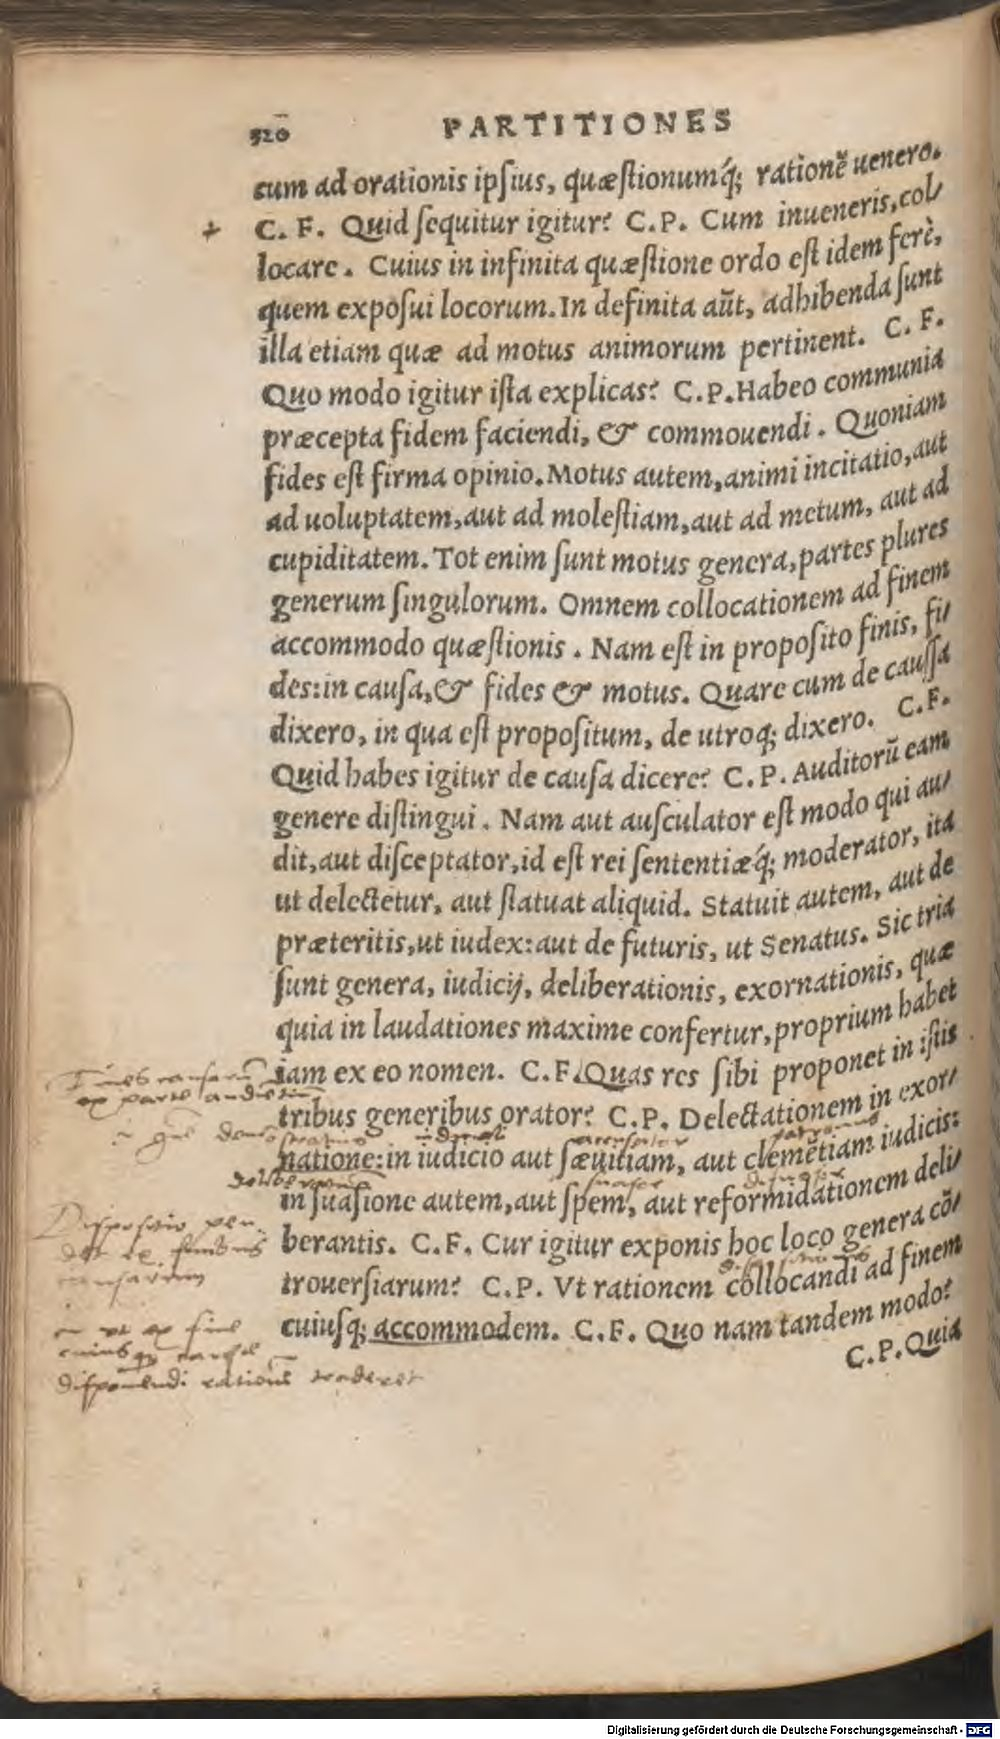 520 PARTITIONES
cum ad orationis ipſius, quæſtionumq́; rationē uenero.
C. F. Quid ſequitur igitur? C.P. Cum inueneris, col/
locare. Cuius in infinita quæſtione ordo eſt idem ferè,
quem expoſui locorum. In definita aūt, adhibenda ſunt
illa etiam quæ ad motus animorum pertinent. C. F.
Quo modo igitur iſta explicas? C.P. Habeo communia
præcepta fidem faciendi, & commouendi. Quoniam
fides eſt firma opinio. Motus autem, animi incitatio, aut
ad uoluptatem, aut ad moleſtiam, aut ad metum, aut ad
cupiditatem. Tot enim ſunt motus genera, partes plures
generum ſingulorum. Omnem collocationem ad finem
accommodo quæſtionis. Nam eſt in propoſito finis, fi/
des: in cauſa, & fides & motus. Quare cum de cauſſa
dixero, in qua eſt propoſitum, de utroq; dixero. C.F.
Quid habes igitur de cauſa dicere? C.P. Auditorū eam
genere diſtingui. Nam aut auſculator eſt modo qui au/
dit, aut diſceptator, id eſt rei ſententiæq́; moderator, ita
ut delectetur, aut ſtatuat aliquid. Statuit autem, aut de
præteritis, ut iudex: aut de futuris, ut Senatus. Sic tria
ſunt genera, iudicij, deliberationis, exornationis, quæ
quia in laudationes maxime confertur, proprium habet
iam ex eo nomen. C.F. Quas res ſibi proponet in iſtis
tribus generibus orator? C.P. Delectationem in exor/
natione: in iudicio aut ſæuitiam, aut clemētiam iudicis:
in ſuaſione autem, aut ſpem, aut reformidationem deli/
berantis. C.F. Cur igitur exponis hoc loco genera cō/
trouerſiarum? C.P. Vt rationem collocandi ad finem
cuiuſq; accommodem. C.F. Quo nam tandem modo?
C.P. Quia
accusator
suasor
Dispositio pen
det ex finibus
causarum
ut ex fine
cuiusq; causae
disponendi rationē traderet
Digitalisierung gefördert durch die Deutsche Forschungsgemeinschaft - DFG